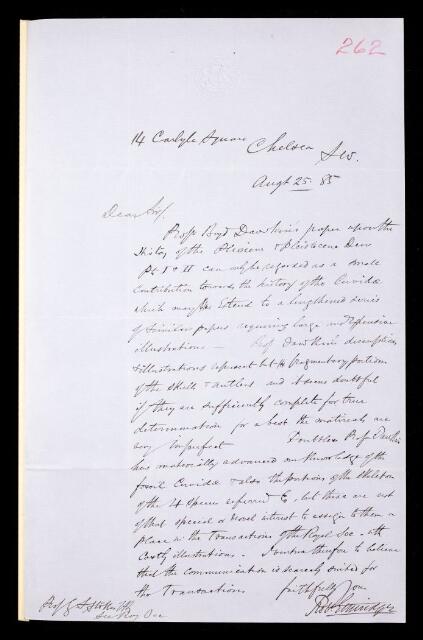 262
14 Carlyle Square
Chelsea
S.W.
Augt 25. 85
Dear Sir/
Profr Boyd Dawkins paper upon the
History of the Pliocene & Pleistocene Deer
Pt I & II can only be regarded as a small
contribution towards the history of the Cervidæ
which may extend to a lengthened series
of similar papers requiring large & expensive
illustrations — Prof Dawkins descriptions
& illustrations represent but the fragmentary portions
of the skulls & antlers and it seems doubtful
if they are sufficiently complete for true
determination for at best the materials are
very imperfect Doubtless Prof Dawkins
has materially advanced our knowledge of the
fossil Cervidæ & also the portions of the skeleton
of the 4 species referred to, but these are not
of that special or novel interest to assign to them a
place in the transactions of the Royal Soc - with
costly illustrations. I therefore to believe
that the communication is scarcely suited for
the Transactions
faithfully Yours
Robt Etheridge
Prof G. Stokes
Sec Roy Soc